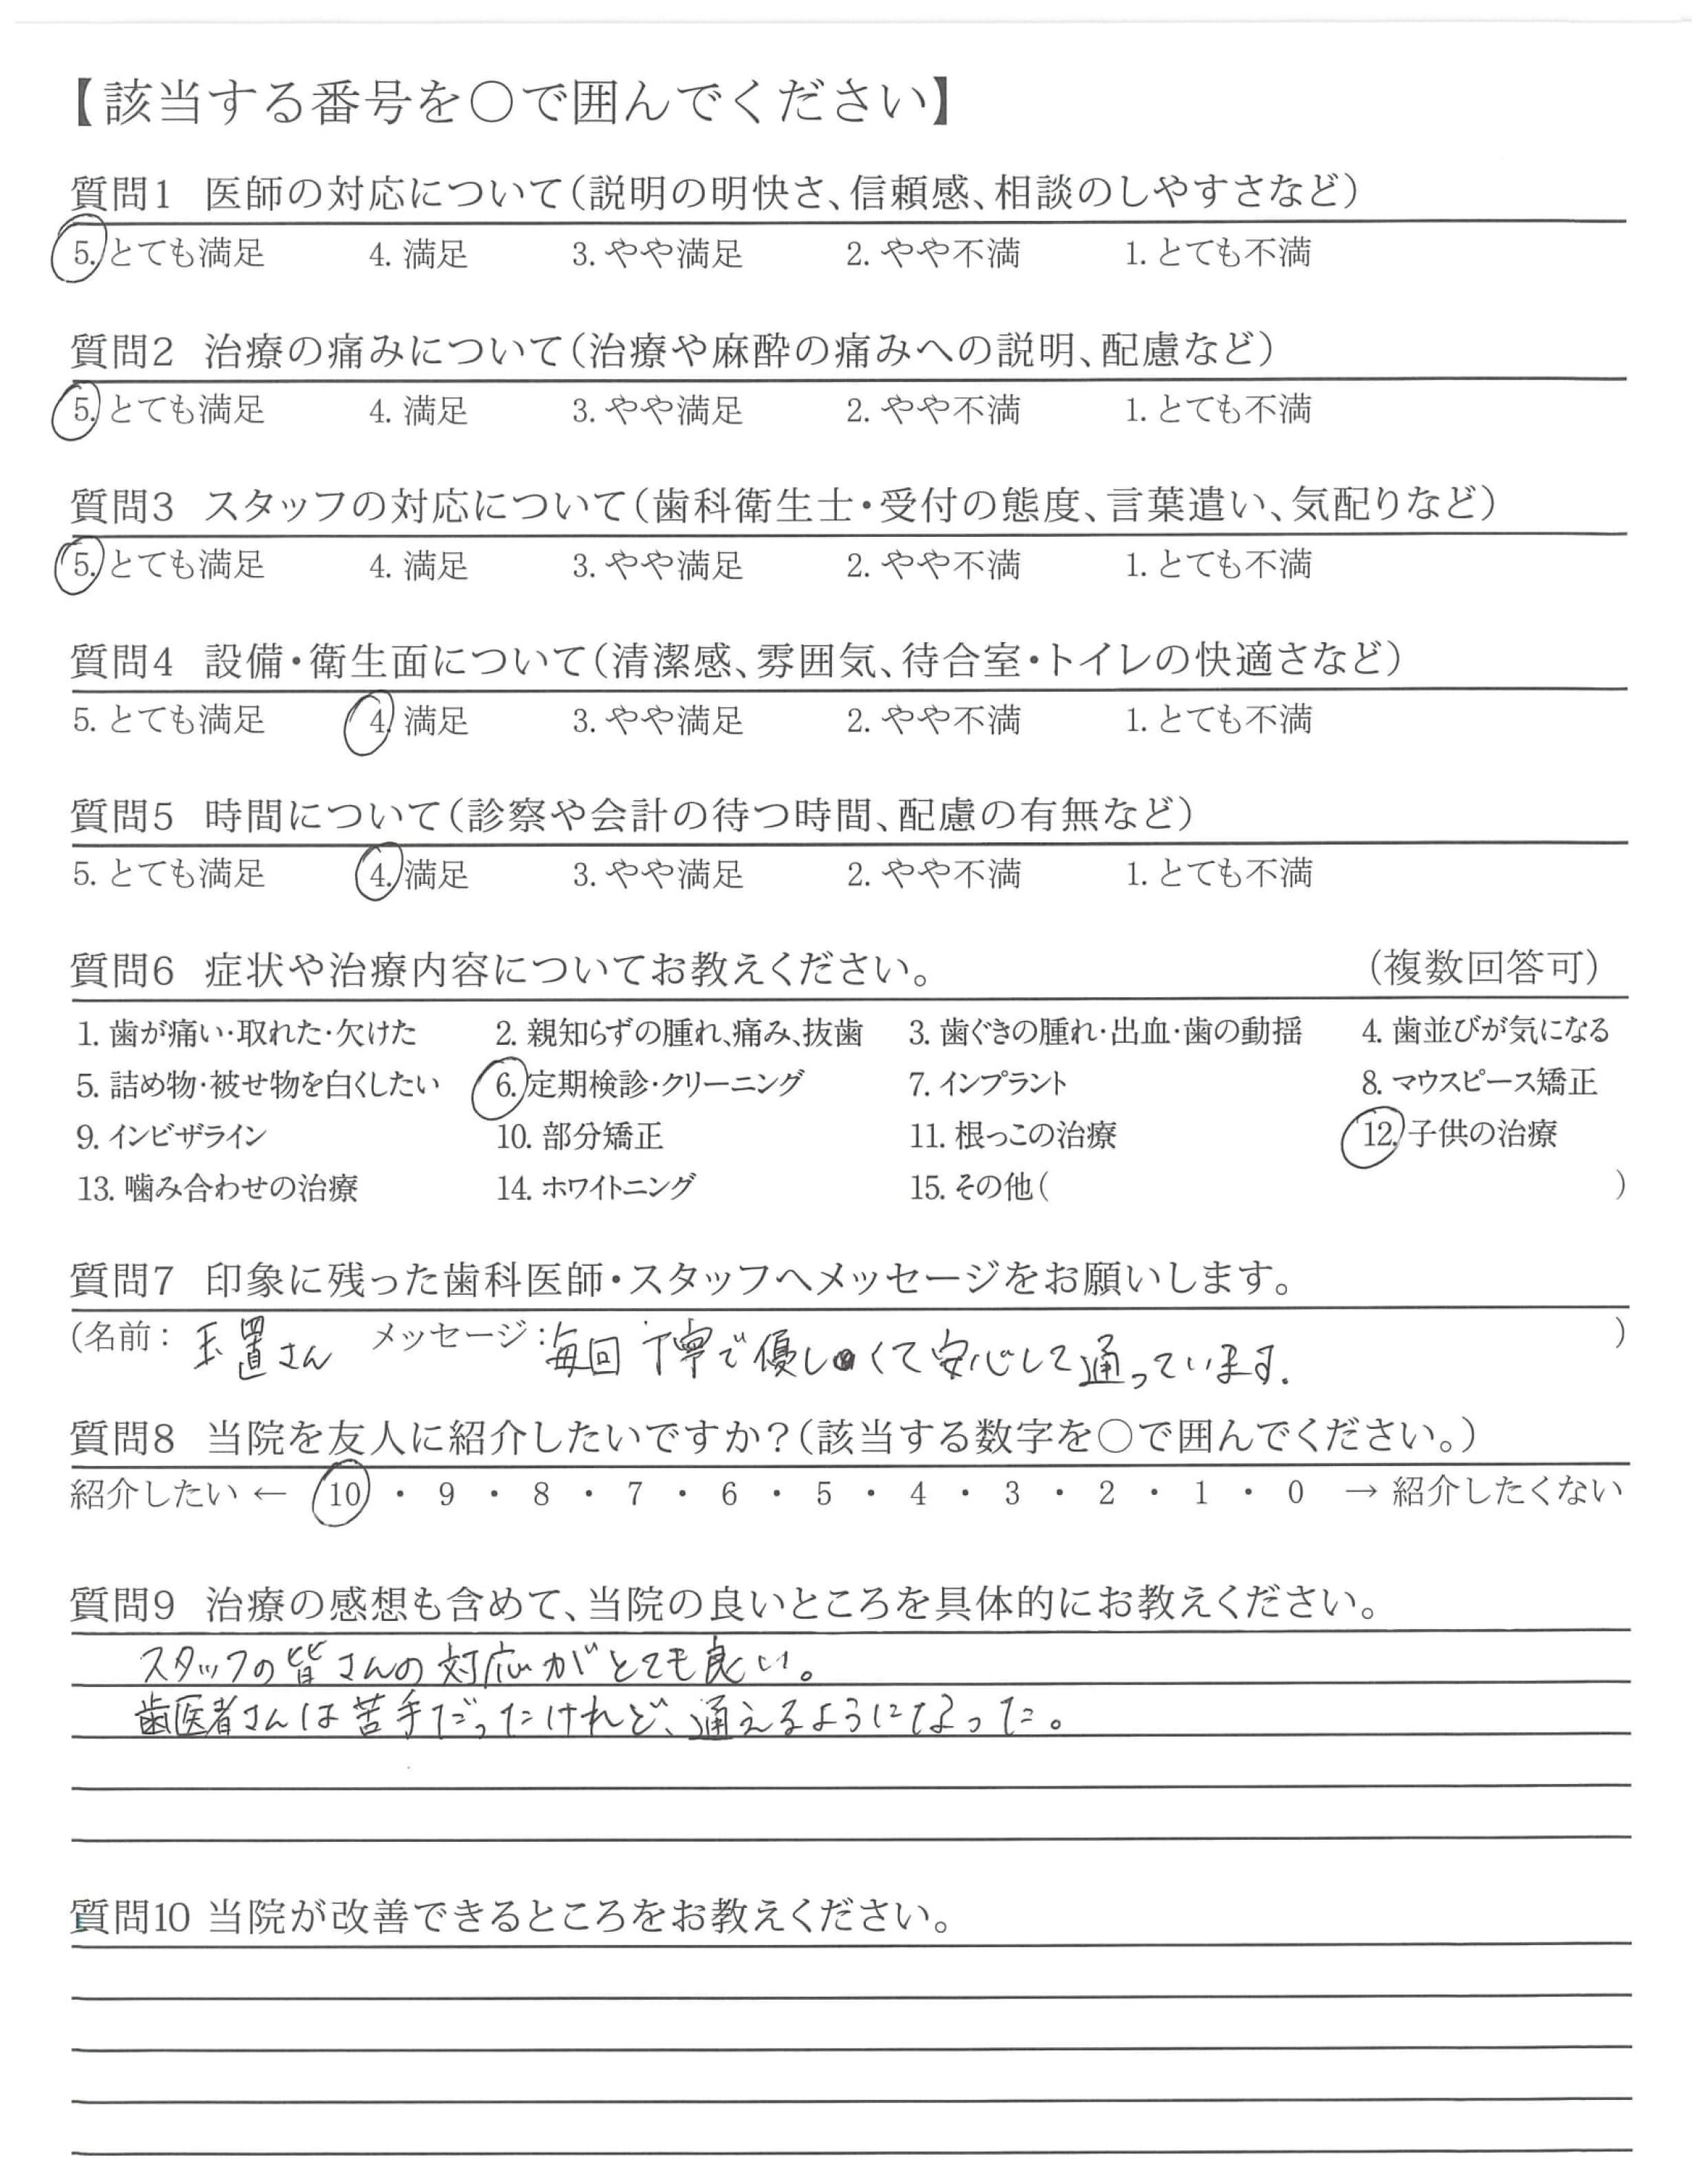 【該当する番号を〇で囲んでください】
質問1 医師の対応について(説明の明快さ、信頼感、相談のしやすさなど)
5. とても満足 4. 満足 3. やや満足 2. やや不満 1. とても不満
質問2 治療の痛みについて(治療や麻酔の痛みへの説明、配慮など)
5. とても満足 4. 満足 3. やや満足 2. やや不満 1. とても不満
質問3 スタッフの対応について(歯科衛生士・受付の態度、言葉遣い、気配りなど)
5. とても満足 4. 満足 3. やや満足 2. やや不満 1. とても不満
質問4 設備・衛生面について(清潔感、雰囲気、待合室・トイレの快適さなど)
5. とても満足 4. 満足 3. やや満足 2. やや不満 1. とても不満
質問5 時間について(診察や会計の待つ時間、配慮の有無など)
5. とても満足 4. 満足 3. やや満足 2. やや不満 1. とても不満
質問6 症状や治療内容についてお教えください。 (複数回答可)
1. 歯が痛い・取れた・欠けた 2. 親知らずの腫れ、痛み、抜歯 3. 歯ぐきの腫れ・出血・歯の動揺 4. 歯並びが気になる
5. 詰め物・被せ物を白くしたい 6. 定期検診・クリーニング 7. インプラント 8. マウスピース矯正
9. インビザライン 10. 部分矯正 11. 根っこの治療 12. 子供の治療
13. 噛み合わせの治療 14. ホワイトニング 15. その他( )
質問7 印象に残った歯科医師・スタッフへメッセージをお願いします。
(名前: 玉置さん メッセージ:毎回 丁寧で優しくて安心して通っています. )
質問8 当院を友人に紹介したいですか?(該当する数字を〇で囲んでください。)
紹介したい ← 10 ・ 9 ・ 8 ・ 7 ・ 6 ・ 5 ・ 4 ・ 3 ・ 2 ・ 1 ・ 0 → 紹介したくない
質問9 治療の感想も含めて、当院の良いところを具体的にお教えください。
スタッフの皆さんの対応がとても良い。
歯医者さんは苦手だったけれど、通えるようになった。
質問10 当院が改善できるところをお教えください。